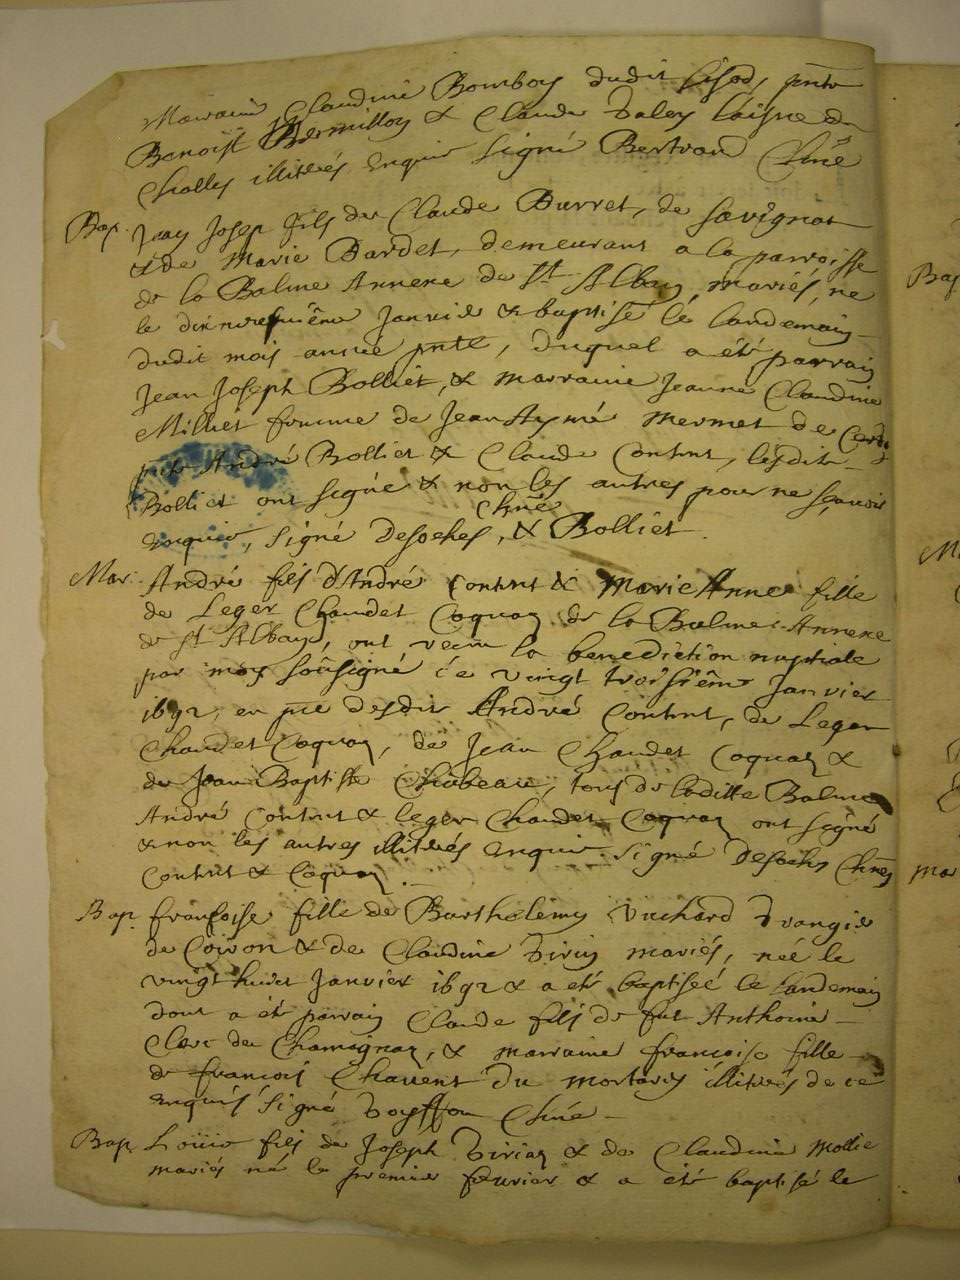 Marraine Claudine Bomboy dudit Lisod, pnts
Benoist Vermilloy & Claude Daley laisne de
Cholles illiterés enquis signé Bertrand Chne
Bap. Jean Josep fils de Claude Burret, de Savignat
& de Marie Dardet, demeurant a la parroisse
de la Balme Annexe de St Alban, mariés, ne
le dixneufuiême Janvier & baptisé le landemain
dudit mois année pnte, duquel a été parrain
Jean Joseph Bolliet, & marraine Jeanne Claudine
Milliet femme de Jean Aymé Mermet de
pnts André Bolliet & Claude Contnt, lesdits
Bolliet ont signé & non les autres pour ne sçavoir
enquis, signé Desoches, Chne & Bolliet.
Mar. André fils d'André Contnt & Marie Anne fille
de Leger Chaudet Coquaz de la Balme Annexe
de St Alban, ont receu la benediction nuptiale
par moy soûsigné ce vingt troisiême Janvier
1692, en pnce desdits André Contnt, de Leger
Chaudet Coquaz, de Jean Chaudet Coquaz &
de Jean Baptiste Chabeau, tous de laditte Balme
André Contnt & leger Chaudet Coquaz ont signé
& non les autres illiterés enquis signé Desoches Chne
Contnt & Coquaz.
Bap. françoise fille de Barthelemy Vuchard Grangie
de Coivon & de Claudine Tiriz mariés, née le
vingt huict Janvier 1692 & a été baptisée le landemain
dont a été parrain Claude fils de fut Anthoine
Clerc de Chamagnaz, & marraine françoise fille
de françois Chavent du mortarey illiterés de ce
enquis signé Doysson Chne
Bap. Loüis fils de Joseph Tiriaz & de Claudine Mollie
mariés né le premier feurier & a été baptisé le